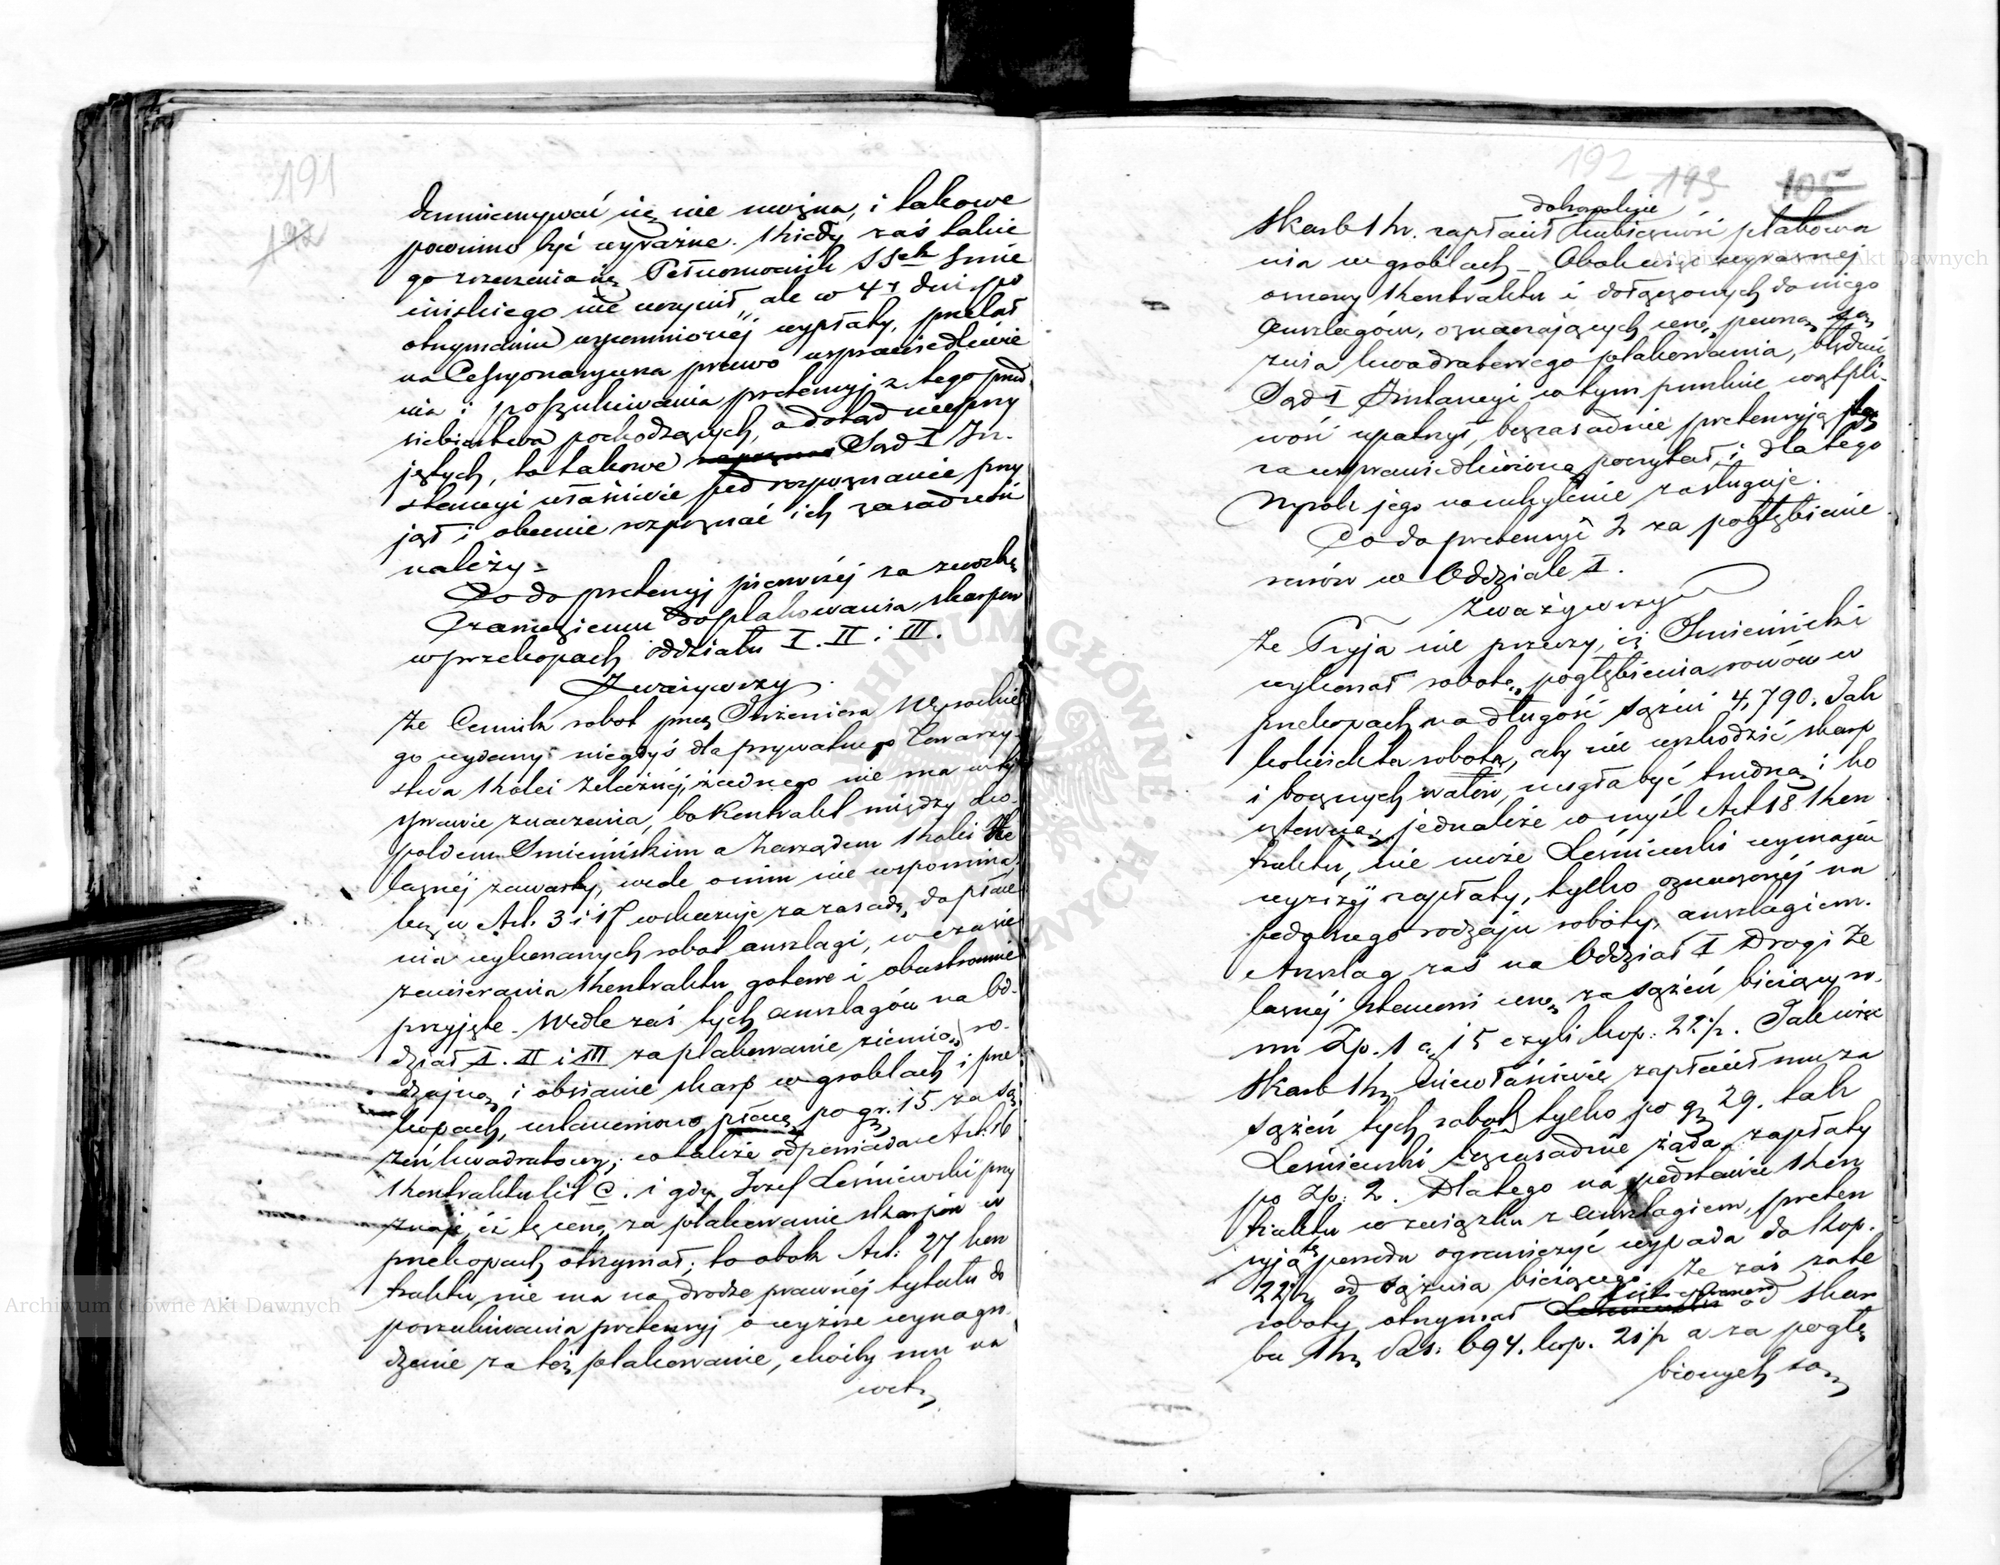 191
192
domniemywać się nie można, i takowe
powinno być wyraźne. Kiedy zaś takie
go zrzeczenia się Pełnomocnik SSek Śmie
cińskiego nie uczynił, ale w 4ry dni po
otrzymaniu wspomnionej wypłaty, przelał
na Cessyonaryusza prawo usprawiedliwie
nia i poszukiwania pretensyj z tego przed
siebierstwa pochodzących, a dotąd nieprzy
jętych, to takowe Sąd I In-
stancyi właściwie pod rozpoznanie przy
jął i obecnie rozpoznać ich zasadność
należy =
Co do pretensyj pierwszej za zwózkę
ziemi do plakowania skarpów
w przekopach oddziału I. II i III.
Zważywszy
że Cennik robot przez Inżeniera
go wydany niegdyś dla prywatnego Towarzy-
stwa Kolei Żelaznej, żadnego nie ma w tej
sprawie znaczenia, bo Kontrakt między Leo-
poldem Śmiecińskim a Zarządem Kolei Że
laznej zawarty, wcale o nim nie wspomina,
lecz w Art. 3 i 15 wskazuje za zasadę do płace
nia wykonanych robot anszlagi, w czasie
zawierania Kontraktu gotowe i obustronnie
przyjęte. Wedle zaś tych anszlagów na Od-
dział I. II i III za plakowanie ziemią ro-
dzajną i obsianie skarp w groblach i prze
kopach, ustanowiono płacę po gr. 15 za są
żeń kwadratowy; co także odpowiada Art: 16
Kontraktu lit C. i gdy Józef Leśniewski przy
znaje, iż tę cenę za plakowanie skarpów w
przekopach otrzymał; to obok Art: 27 kon
traktu, nie ma na drodze prawnej tytułu do
poszukiwania pretensyj o wyższe wynagro-
dzenie za toż plakowanie, choćby mu na
wet
192 193 105
dokonaliżie
Skarb Kr. zapłacił plakowa
nia w groblach – Obok więc wyraźnej
osnowy Kontraktu i dołączonych do niego
Anszlagów, oznaczających cenę pewną są
żnia kwadratowego plakowania, błędnie
Sąd I Instancyi w tym punkcie wątpli-
wość upatrzył, bezzasadnie pretensyją tę
za usprawiedliwioną poczytał i dlatego
Wyrok jego na uchylenie zasługuje.
Co do pretensyi 2 za pogłębienie
rowów w Oddziale I.
Zważywszy
że P̃ryja nie przeczy, iż Śmieciński
wykonał robotę pogłębienia rowów w
przekopach na długość sążni 4,790. Jak
kolwiek ta robota, aby nie uszkodzić skarp
i bocznych wałów, mogła być trudną i ko
sztowną, jednakże w myśl Art 18 Kon
traktu, nie może Leśniewski wymagać
wyższej zapłaty, tylko oznaczonej na
podobnego rodzaju roboty, anszlagiem.
Anszlag zaś na Oddział I Drogi Że
laznej stanowi cenę za sążeń bieżący ro-
wu Zp. 1 g 15 czyli kop: 22½. Jak więc
Skarb Kr. niewłaściwie zapłacił mu za
sążeń tych robot tylko po g 29. tak
Leśniewski bezzasadnie żąda zapłaty
po Zp: 2. Dlatego na podstawie Kon
traktu w związku z Anszlagiem, preten
syją tę powodu ograniczyć wypada do kop.
22½ od sążnia bieżącego. że zaś za te
roboty otrzymał od Skar
bu Kr. Rs: 694. kop. 21½ a za pogłę
bionych są